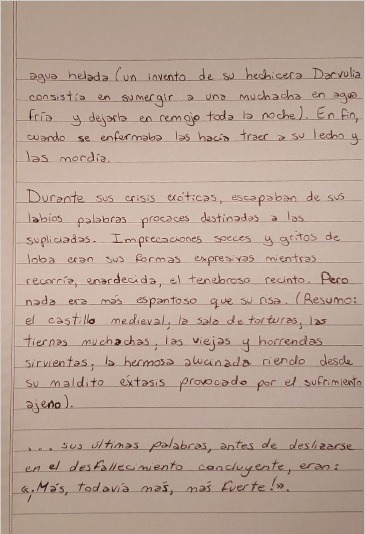 agua helada (un invento de su hechicera Darvulia
consistía en sumergir a una muchacha en agua
fría y dejarla en remojo toda la noche). En fin,
cuando se enfermaba las hacía traer a su lecho y
las mordía.
Durante sus crisis eróticas, escapaban de sus
labios palabras procaces destinadas a las
supliciadas. Imprecaciones soeces y gritos de
loba eran sus formas expresivas mientras
recorría, enardecida, el tenebroso recinto. Pero
nada era más espantoso que su risa. (Resumo:
el castillo medieval; la sala de torturas; las
tiernas muchachas; las viejas y horrendas
sirvientas; la hermosa alucinada riendo desde
su maldito éxtasis provocado por el sufrimiento
ajeno).
... sus últimas palabras, antes de deslizarse
en el desfallecimiento concluyente, eran:
«¡Más, todavía más, más fuerte!».